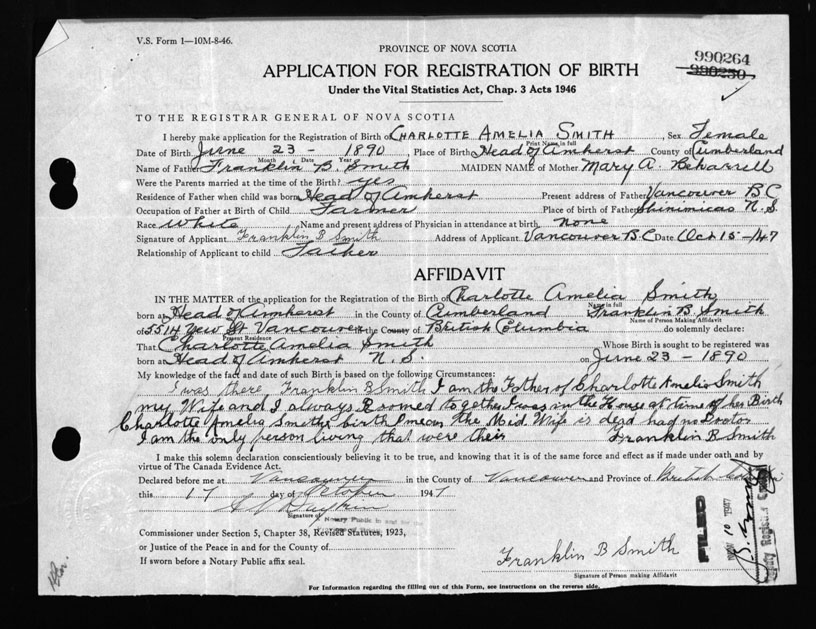 V.S. Form 1—10M-8-46.
PROVINCE OF NOVA SCOTIA
990264
990250
APPLICATION FOR REGISTRATION OF BIRTH
Under the Vital Statistics Act, Chap. 3 Acts 1946
TO THE REGISTRAR GENERAL OF NOVA SCOTIA
I hereby make application for the Registration of Birth of CHARLOTTE AMELIA SMITH, Sex Female
Print Name in full
Date of Birth June 23 - 1890, Place of Birth Head of Amherst County of Cumberland
Month Date Year
Name of Father Franklin B. Smith MAIDEN NAME of Mother Mary A. Beharrell
Were the Parents married at the time of the Birth? yes
Residence of Father when child was born Head of Amherst Present address of Father Vancouver B C
Occupation of Father at Birth of Child Farmer Place of birth of Father Shinimicas N.S.
Race White Name and present address of Physician in attendance at birth none
Signature of Applicant Franklin B Smith Address of Applicant Vancouver B.C Date Oct 15-/47
Relationship of Applicant to child Father
AFFIDAVIT
IN THE MATTER of the application for the Registration of the Birth of Charlotte Amelia Smith
Name in full
born at Head of Amherst in the County of Cumberland Franklin B. Smith
Name of Person Making Affidavit
of 5514 Yew St Vancouver in the County of British Columbia do solemnly declare:
Present Residence
That Charlotte Amelia Smith Whose Birth is sought to be registered was
born at Head of Amherst N.S. on June 23 - 1890
My knowledge of the fact and date of such Birth is based on the following Circumstances:
I was there Franklin B Smith I am the Father of Charlotte Amelia Smith
my Wife and I always Roomed together I was in the House at time of her Birth
Charlotte Amelia Smiths birth I mean the Mid. Wife is dead had no Doctor
I am the only person living that were their Franklin B Smith
I make this solemn declaration conscientiously believing it to be true, and knowing that it is of the same force and effect as if made under oath and by
virtue of The Canada Evidence Act.
Declared before me at Vancouver in the County of Vancouver and Province of British Columbia
this 17 day of October 1947
Signature of Notary Public in and for the
Commissioner under Section 5, Chapter 38, Revised Statutes, 1923,
or Justice of the Peace in and for the County of
If sworn before a Notary Public affix seal.
FILED
10 1947
Deputy Registrar General
Franklin B Smith
Signature of Person making Affidavit
For Information regarding the filling out of this Form, see instructions on the reverse side.